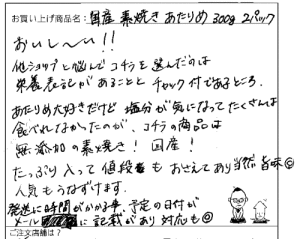 お買い上げ商品名: 国産 素焼き あたりめ 300g 2パック
おいし〜い!!
他ショップと悩んでコチラを選んだのは
栄養表記があることと チャック付であるところ。
あたりめ大好きだけど 塩分が気になってたくさんは
食べれなかったのが、コチラの商品は
無添加の素焼き! 国産!
たっぷり入って値段も おさえてあり当然 旨味◎
人気もうなずけます。
発送に時間がかかる事、予定の日付が
メールに記載があり 対応も◎
ご注文店舗は?